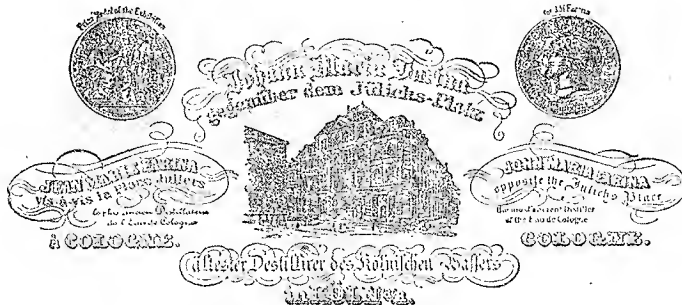 Prize Medal of the Exhibition
Johann Maria Farina
gegenüber dem Jülichs-Platz
JEAN MARIE FARINA
Vis-à-vis la Place Juliers
le plus ancien Distillateur
de l'Eau de Cologne
à COLOGNE.
JOHN MARIA FARINA
opposite the Julichs Place
the most ancient Distiller
of the Eau de Cologne
COLOGNE.
ältester Destillirer des Kölnischen Wassers
in KÖLN